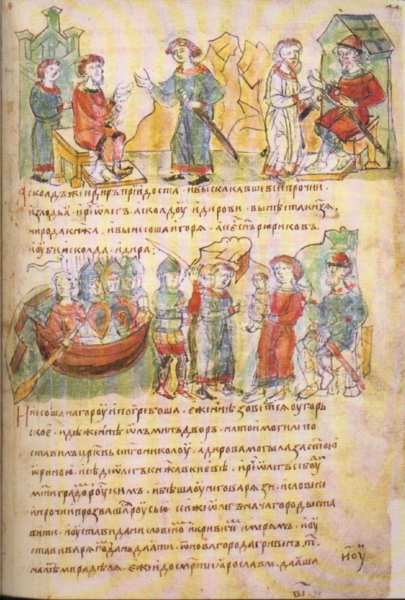 асколдъ же и диръ прїидоста · и выскакавше вси прочии
из лодьа · и рⷱ҇е ѡлегъ асколдоу и дирови · вы нѣста кн҃зѧ
ни рода кнѧжа · и вынесоша игорѧ · а се єⷭ҇ сн҃ъ рюриковъ ·
и оубиша асколда и дира :
И несоша на гороу и погребоша · еже нн҃ѣ зоветсѧ оугорь
ское · идѣже нн҃ѣ ѡлъминъ дворъ · на тои могилѣ по
ставилъ цр҃квь ст҃го николоу · а дирова могыла за ст҃ою
ѡриною · и сѣде ѡлегъ кнѧжа в киевѣ · и рⷱ҇е ѡлегъ се боуⷣ
мт҃и градоⷨ роусскимъ · и бѣша оу него варѧзи · и словене
и прочїи прозвашасѧ роусью · се же ѡлегъ нача городы ста
вити · и оустави дани словеноⷨ и кривичеⷨ и мерѧмъ · и оу
стави варѧгоⷨ дань даѧти · ѿ новагорода гривенъ т҃
на лѣт мира делѧ · еже и до смр҃ти ярославлѧ даяша
и оу
в҃ı